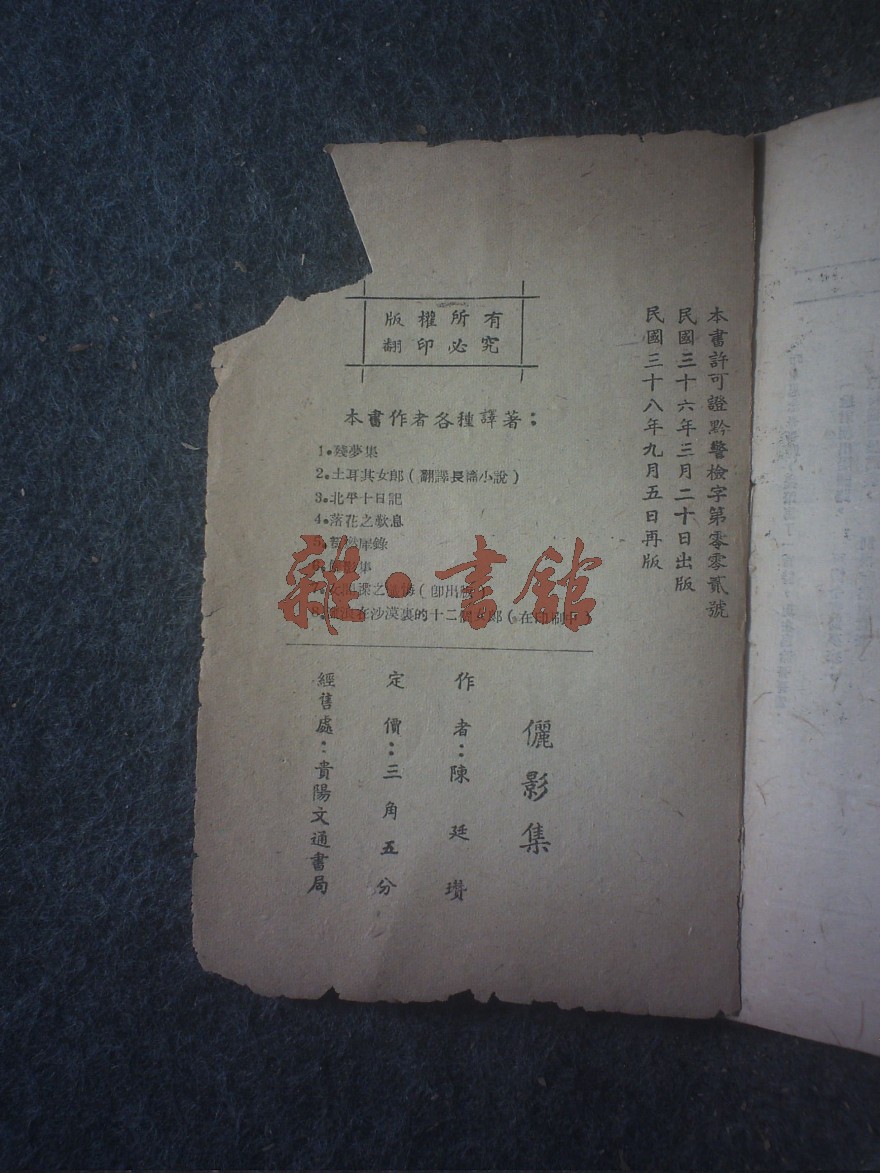 本書許可證黔警檢字第零零貳號
民國三十六年三月二十日出版
民國三十八年九月五日再版
版權所有
翻印必究
本書作者各種譯著：
1.殘夢集
2.土耳其女郎（翻譯長篇小說）
3.北平十日記
4.落花之歎息
5. 犀錄
6. 集
7. 之 （即出版）
8. 在沙漠裏的十二個女郎（在印刷中）
雜·書館
儷影集
作者：陳廷瓚
定價：三角五分
經售處：貴陽文通書局